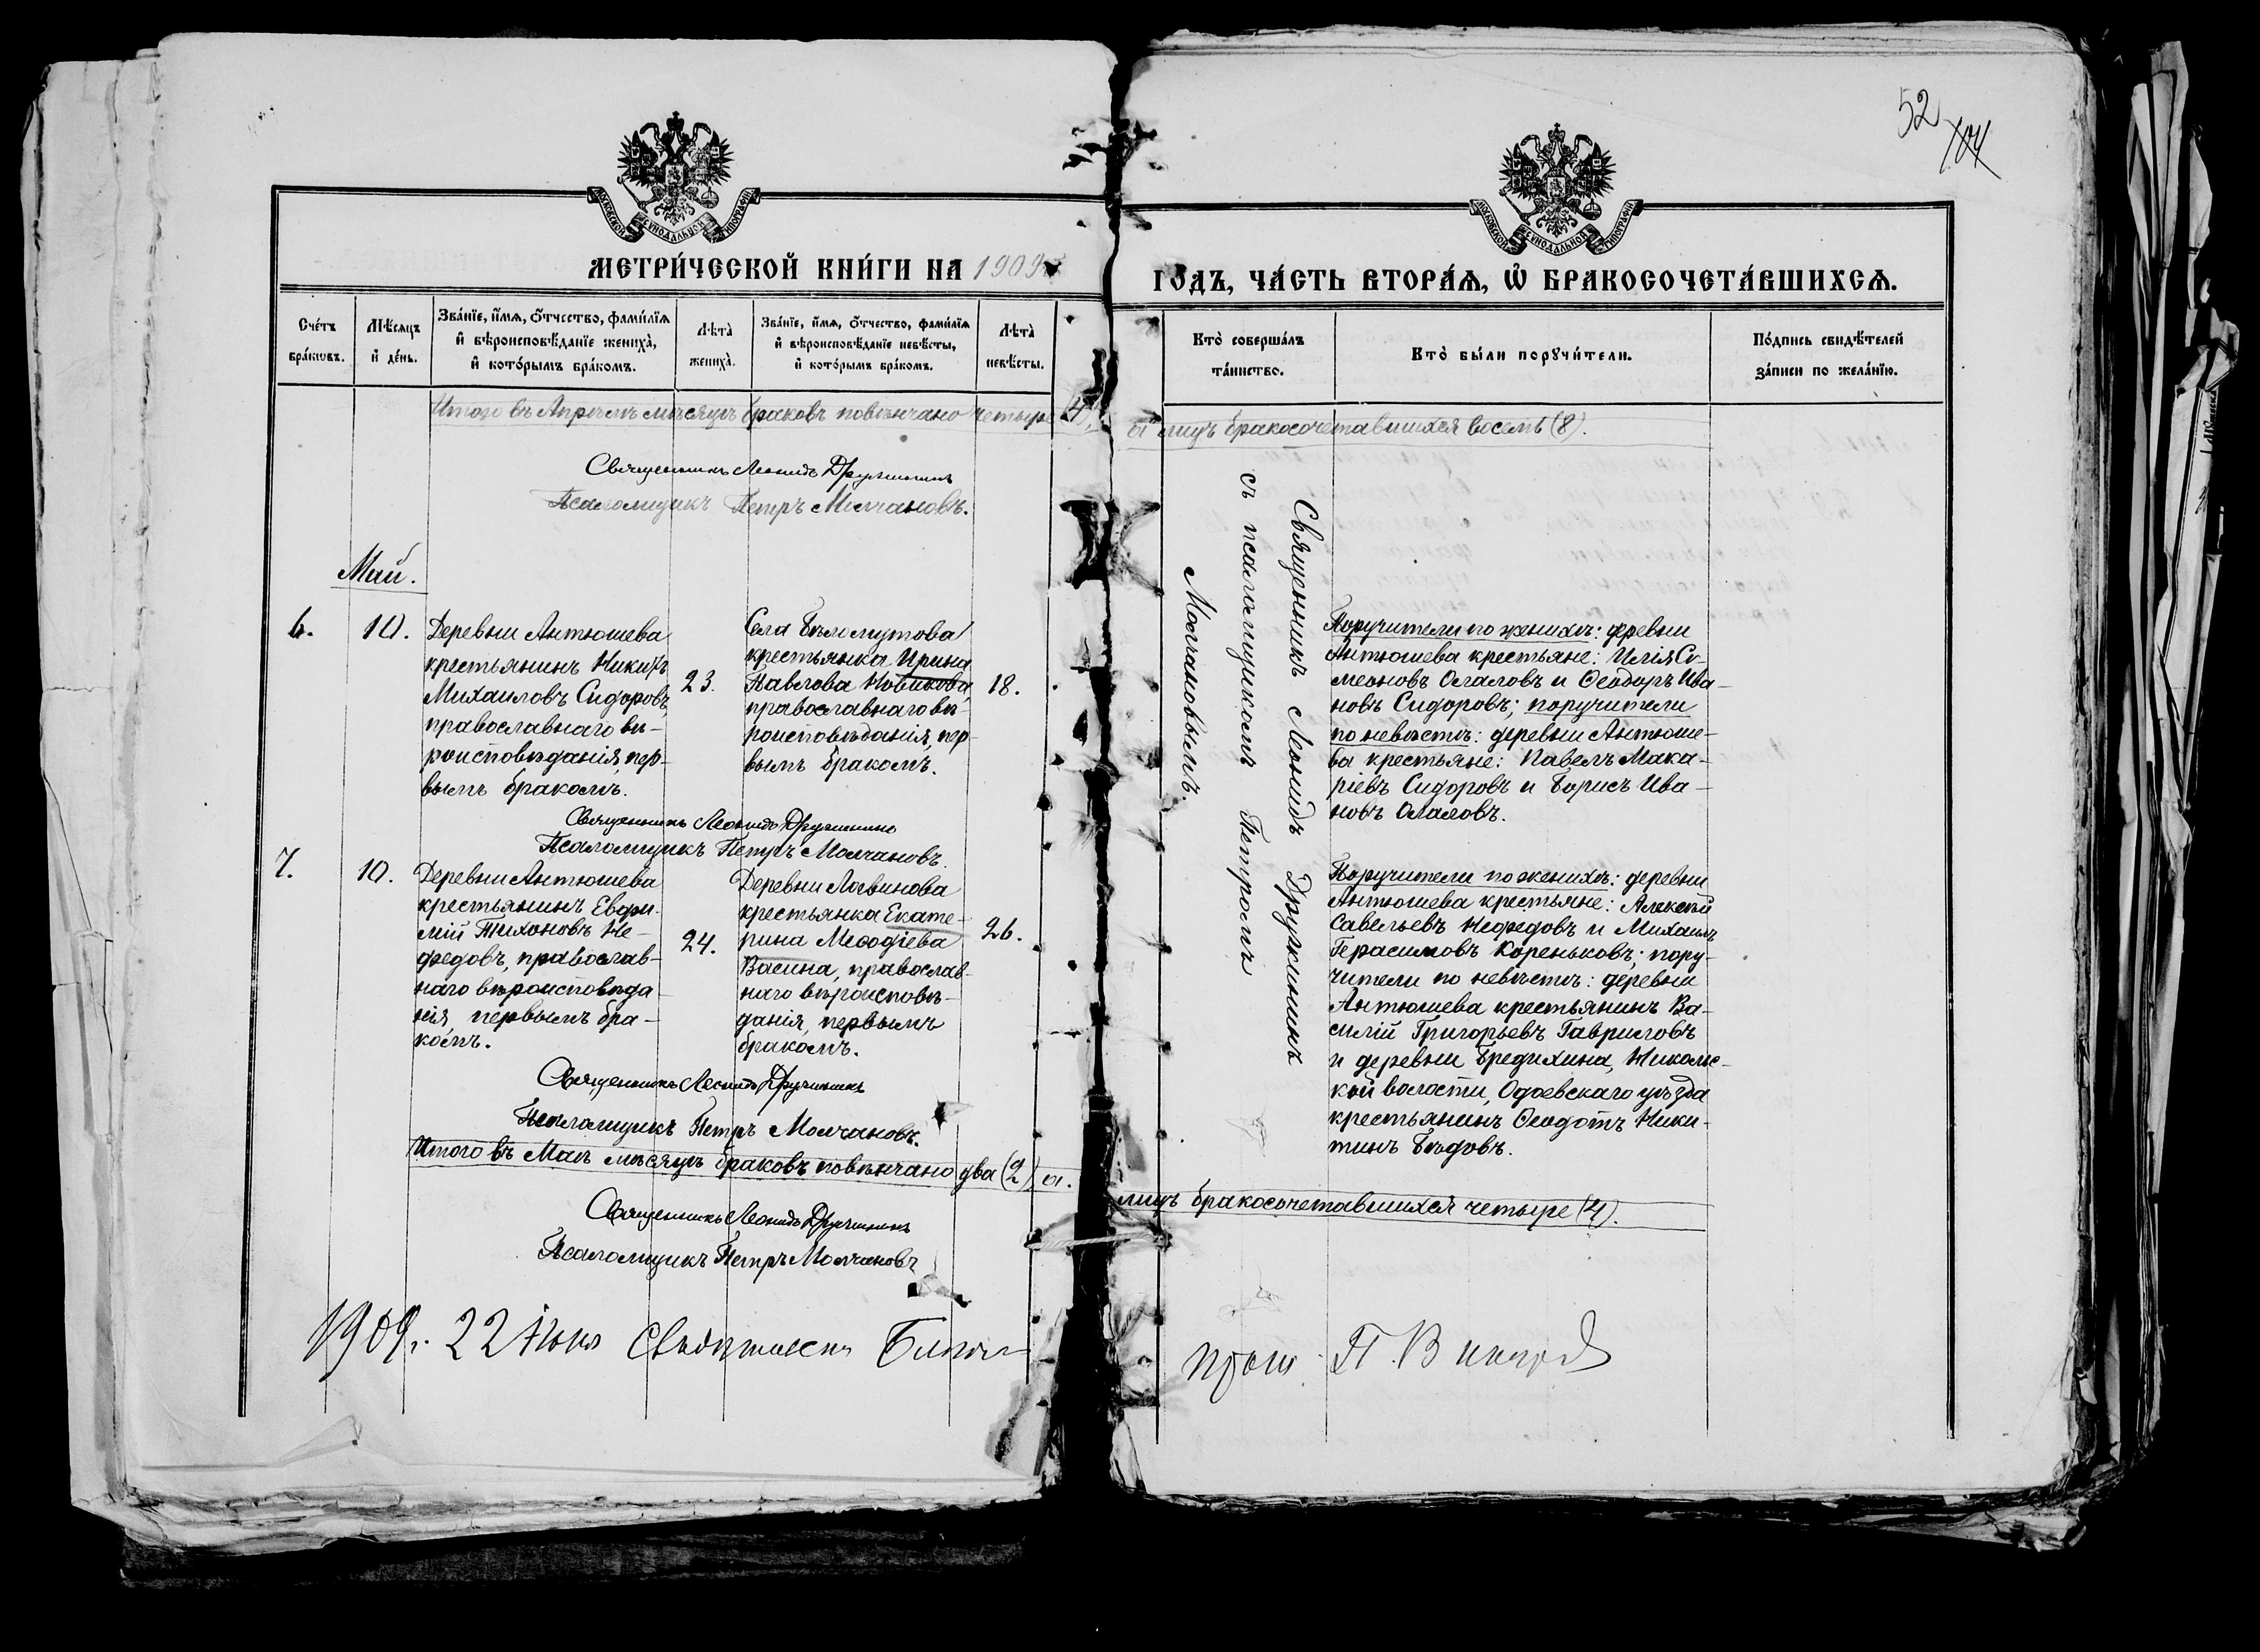 52
104
МОСКОВСКОЙ СѴНОДАЛЬНОЙ ТИПОГРАФІИ
МОСКОВСКОЙ СѴНОДАЛЬНОЙ ТИПОГРАФІИ
МЕТРИ́ЧЕСКОЙ КНИ́ГИ НА 1909
ГОДЪ, ЧА́СТЬ ВТОРА́Ѧ, Ѽ БРАКОСОЧЕТА́ВШИХСѦ.
Сче́тъ
бра́кωвъ.
Мѣ́сяцъ
и҆ де́нь.
Зва́нїе, и҆́мѧ, ѻ҆́тчество, фами́лїѧ
и҆ вѣроисповѣ́данїе жениха̀,
и҆ кото́рымъ бра́комъ.
Лѣта̀
жениха̀.
Зва́нїе, и҆́мѧ, ѻ҆́тчество, фами́лїѧ
и҆ вѣроисповѣ́данїе невѣ́сты,
и҆ кото́рымъ бра́комъ.
Лѣта̀
невѣ́сты.
Кто̀ соверша́лъ
та́инство.
Кто̀ бы́ли порꙋчи́тели.
По́дпись свидѣ́телей
за́писи по жела́нїю.
Итого въ Апрѣлѣ мѣсяцѣ браковъ повѣнчано четыре (4),
а лицъ бракосочетавшихся восемь (8).
Священникъ Леонидъ Дружининъ
Псаломщикъ Петръ Молчановъ.
Май.
6.
10.
Деревни Антюшева
крестьянинъ Никита
Михаиловъ Сидоровъ,
православнаго вѣ-
роисповѣданія, пер-
вымъ бракомъ.
23.
Села Бѣломутова
крестьянка Ирина
Павлова Новикова,
православнаго вѣ-
роисповѣданія, пер-
вымъ бракомъ.
18.
Священникъ Леонидъ Дружининъ
съ псаломщикомъ Петромъ
Молчановымъ.
Поручители по женихѣ: деревни
Антюшева крестьяне: Илія Си-
меоновъ и Ѳеодоръ Ива-
новъ Сидоровъ; поручители
по невѣстѣ: деревни Антюше-
ва крестьяне: Павелъ Мака-
ріевъ Сидоровъ и Борисъ Ива-
новъ
Священникъ Леонидъ Дружининъ
Псаломщикъ Петръ Молчановъ.
7.
10.
Деревни Антюшева
крестьянинъ Евфи-
мій Тихоновъ Не-
федовъ, православ-
наго вѣроисповѣда-
нія, первымъ бра-
комъ.
24.
Деревни Логвинова
крестьянка Екате-
рина Меѳодіева
Васина, православ-
наго вѣроисповѣ-
данія, первымъ
бракомъ.
26.
Поручители по женихѣ: деревни
Антюшева крестьяне: Алексѣй
Савельевъ Нефедовъ и Михаилъ
Герасимовъ Кореньковъ; пору-
чители по невѣстѣ: деревни
Антюшева крестьянинъ Ва-
силій Григорьевъ Гавриловъ
и деревни Бредихина, Николь-
ской волости, Одоевскаго уѣзда
крестьянинъ Ѳеодотъ Ники-
тинъ Бѣдовъ.
Священникъ Леонидъ Дружининъ
Псаломщикъ Петръ Молчановъ.
Итого въ Маѣ мѣсяцѣ браковъ повѣнчано два (2), а
лицъ бракосочетавшихся четыре (4).
Священникъ Леонидъ Дружининъ
Псаломщикъ Петръ Молчановъ
1909 г. 22 Іюня